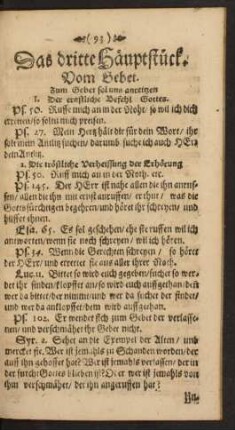 (93)
Das dritte Häuptstück.
Vom Gebet.
Zum Gebet sol uns anreitzen
1. Der ernstliche Befehl Gottes.
Ps. 50. Ruffe mich an in der Noht/ so wil ich dich
erretten/ so solt mich preisen.
Ps. 27. Mein Hertz hält dir für dein Wort/ ihr
solt mein Antlitz suchen/ darumb suche ich auch HErr
dein Antlitz.
2. Die tröstliche Verheissung der Erhörung
Ps. 50. Ruff mich an in der Noth. etc.
Ps. 145. Der HErr ist nahe allen die ihn anruf-
fen/ allen die ihn mit ernst anruffen/ er thut/ was die
Gottsfürchtigen begehren und höret ihr schreyen/ und
hilffet ihnen.
Esa. 65. Es sol geschehen/ ehe sie ruffen wil ich
antworten/ wenn sie noch schreyen/ wil ich hören.
Ps. 34. Wenn die Gerechten schreyen/ so höret
der HErr/ und errettet sie aus aller ihrer Noth.
Luc. 11. Bittet so wird euch gegeben/ suchet so wer-
det ihr finden/ klopffet an/ so wird euch auffgethan/ deñ
wer da bittet/ der nimmt/ und wer da suchet der findet/
und wer da anklopffet/ dem wird auffgethan.
Ps. 102. Er wendet sich zum Gebet der verlasse-
nen/ und verschmähet ihr Gebet nicht.
Syr. 2. Sehet an die Exempel der Alten/ und
mercket sie. Wer ist jemahls zu Schanden worden/ der
auff ihn gehoffet hat? Wer ist jemahls verlassen/ der in
der furcht Gottes blieben ist? Oder wer ist jemahls von
ihm verschmähet/ der ihn angeruffen hat?